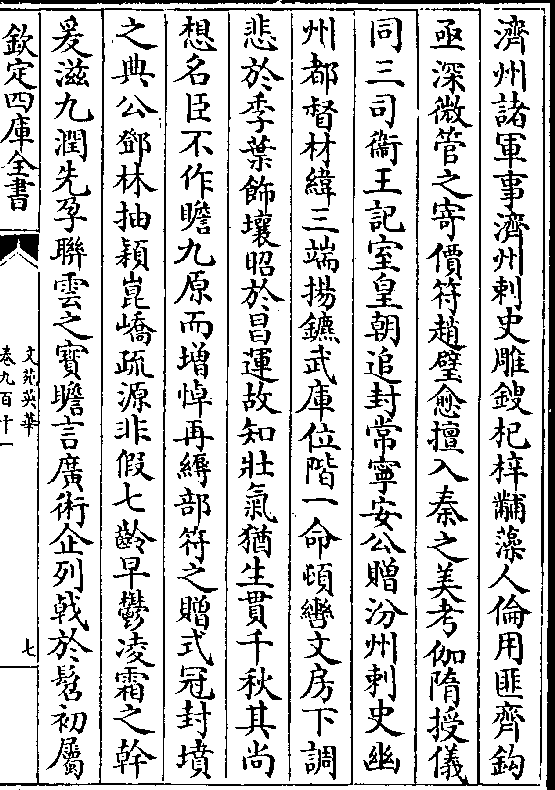 濟州諸軍事濟州刺史雕鎪杞梓黼藻人倫用匪齊鈎
亟深微管之寄價符趙璧愈擅入秦之美考伽隋授儀
同三司衞王記室皇朝追封常寧安公贈汾州刺史幽
州都督材緯三端揚鑣武庫位階一命頓轡文房下調
悲於季葉飾壤昭於昌運故知壯氣猶生貫千秋其尚
想名臣不作瞻九原而增悼再縟部符之贈式冠封墳
之典公鄧林抽穎崑嶠疏源非假七齡早鬱凌霜之幹
爰滋九潤先孕聯雲之寳瞻言廣術企列戟於髫初屬
欽定四庫全書
文苑英華
卷九百十一
七